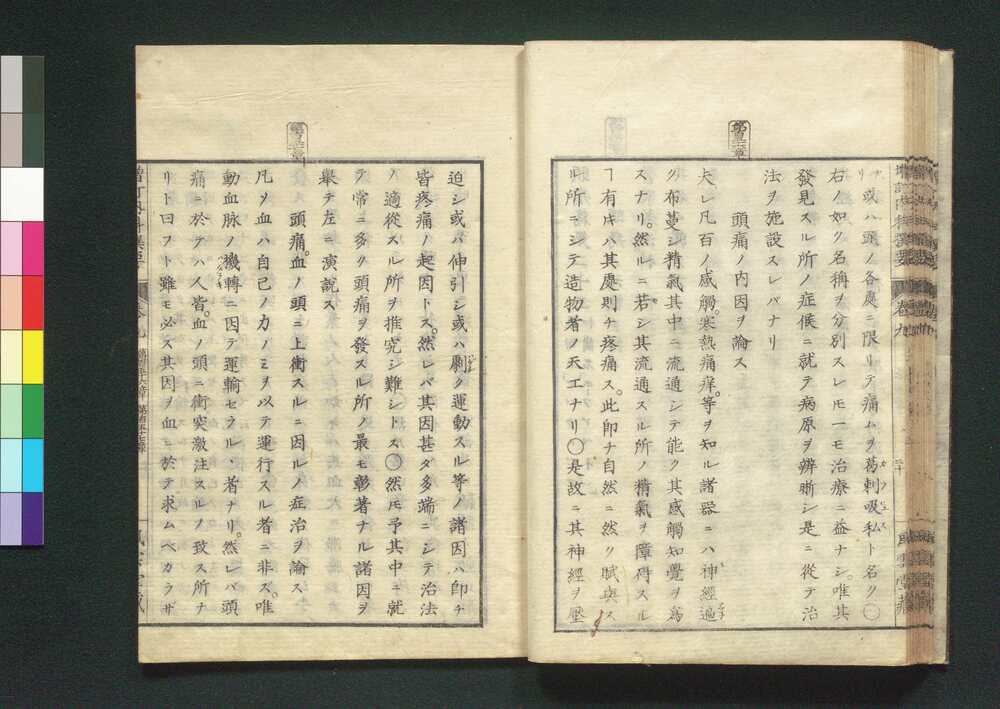 第五十六章
リ或ハ頭ノ各處ニ限リテ痛ムヲ葛剌吸私ト名ク〇
右ノ如ク名稱ヲ分別スレ𪜈一モ治療ニ益ナシ唯其
發見スル所ノ症候ニ就テ病原ヲ辨晰シ是ニ從テ治
法ヲ施設スレバナリ
頭痛ノ内因ヲ論ス
夫レ凡百ノ感觸寒熱痛痒等ヲ知ル諸器ニハ神經遍
ク布蔓シ精氣其中ニ流通シテ能ク其感觸知覺ヲ爲
スナリ。然ルニ若シ其流通スル所ノ精氣ヲ障碍スル
ヿ有レハ其處則チ疼痛ス。此即チ自然ニ然ク賦與ス
ル所ニシテ造物者ノ天工ナリ〇是故ニ其神經ヲ壓
増訂内科撰要 卷九
迫シ或ハ伸引シ或ハ劇ク運動スル等ノ諸因ハ即チ
皆疼痛ノ起因トス。然レバ其因甚ダ多端ニシテ治法
ハ適從スル所ヲ推究シ難シトス〇然𪜈予其中ニ就
テ常ニ多ク頭痛ヲ發スル所ノ最モ彰著ナル諸因ヲ
舉テ左ニ演説ス
頭痛。血ノ頭ニ上衝スルニ因ルノ症治ヲ論ス
凡ソ血ハ自己ノ力ノミヲ以テ運行スル者ニ非ス。唯
動血脉ノ機轉ニ因テ運輸セラルヽ者ナリ。然レバ頭
痛ニ於テハ人皆。血ノ頭ニ衝突激注スルノ致ス所ナ
リト曰フト雖モ必ス其因ヲ血ニ於テ求ムベカラザ